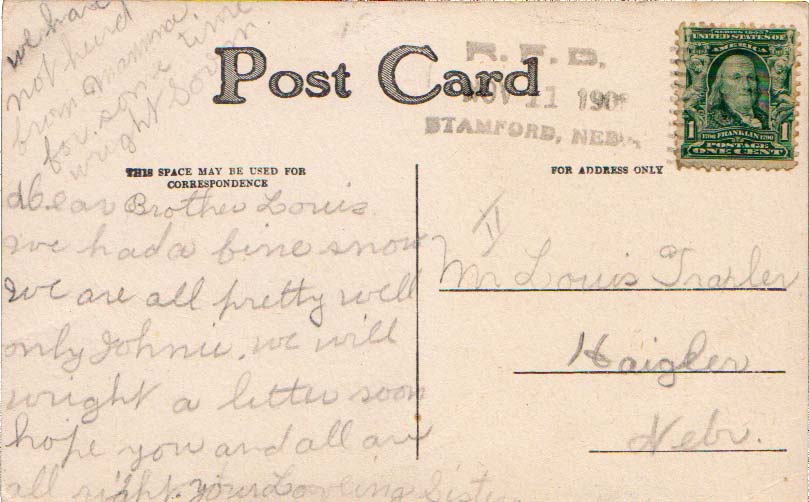 we have
not heard
from mamma
for some time
wright soon.
Post Card
R. F. D.
NOV 11 190
STAMFORD, NEBR.
SERIES 1902
UNITED STATES OF
AMERICA
1 1706 FRANKLIN 1790 1
POSTAGE
ONE CENT
THIS SPACE MAY BE USED FOR
CORRESPONDENCE
FOR ADDRESS ONLY
Dear Brother Louis
we had a fine snow
we are all pretty well
only Johnie. we will
wright a letter soon
hope you and all are
all right. your Loveing Sister
Mr Louis Traxler
Haigler
Nebr.